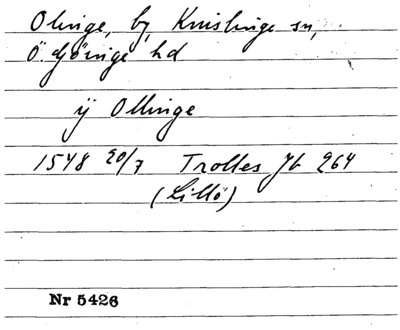 Olinge, by, Knislinge sn,
Ö. Göinge hd
ij Ollinge
1548 20/7 Trolles Jb 264
(Lillö)
Nr 5426